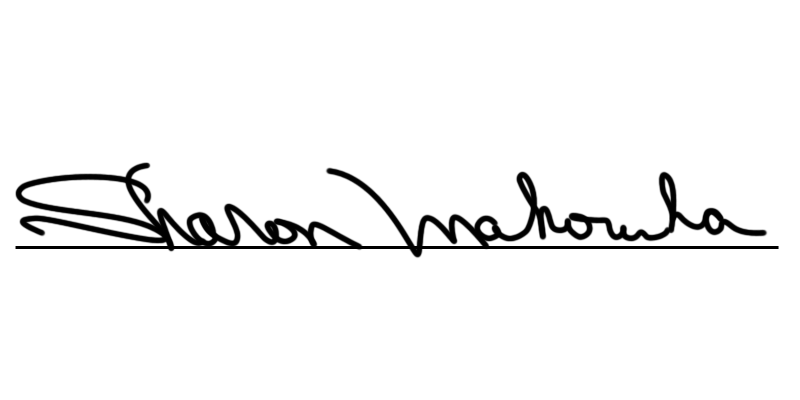 Sharon Makowha